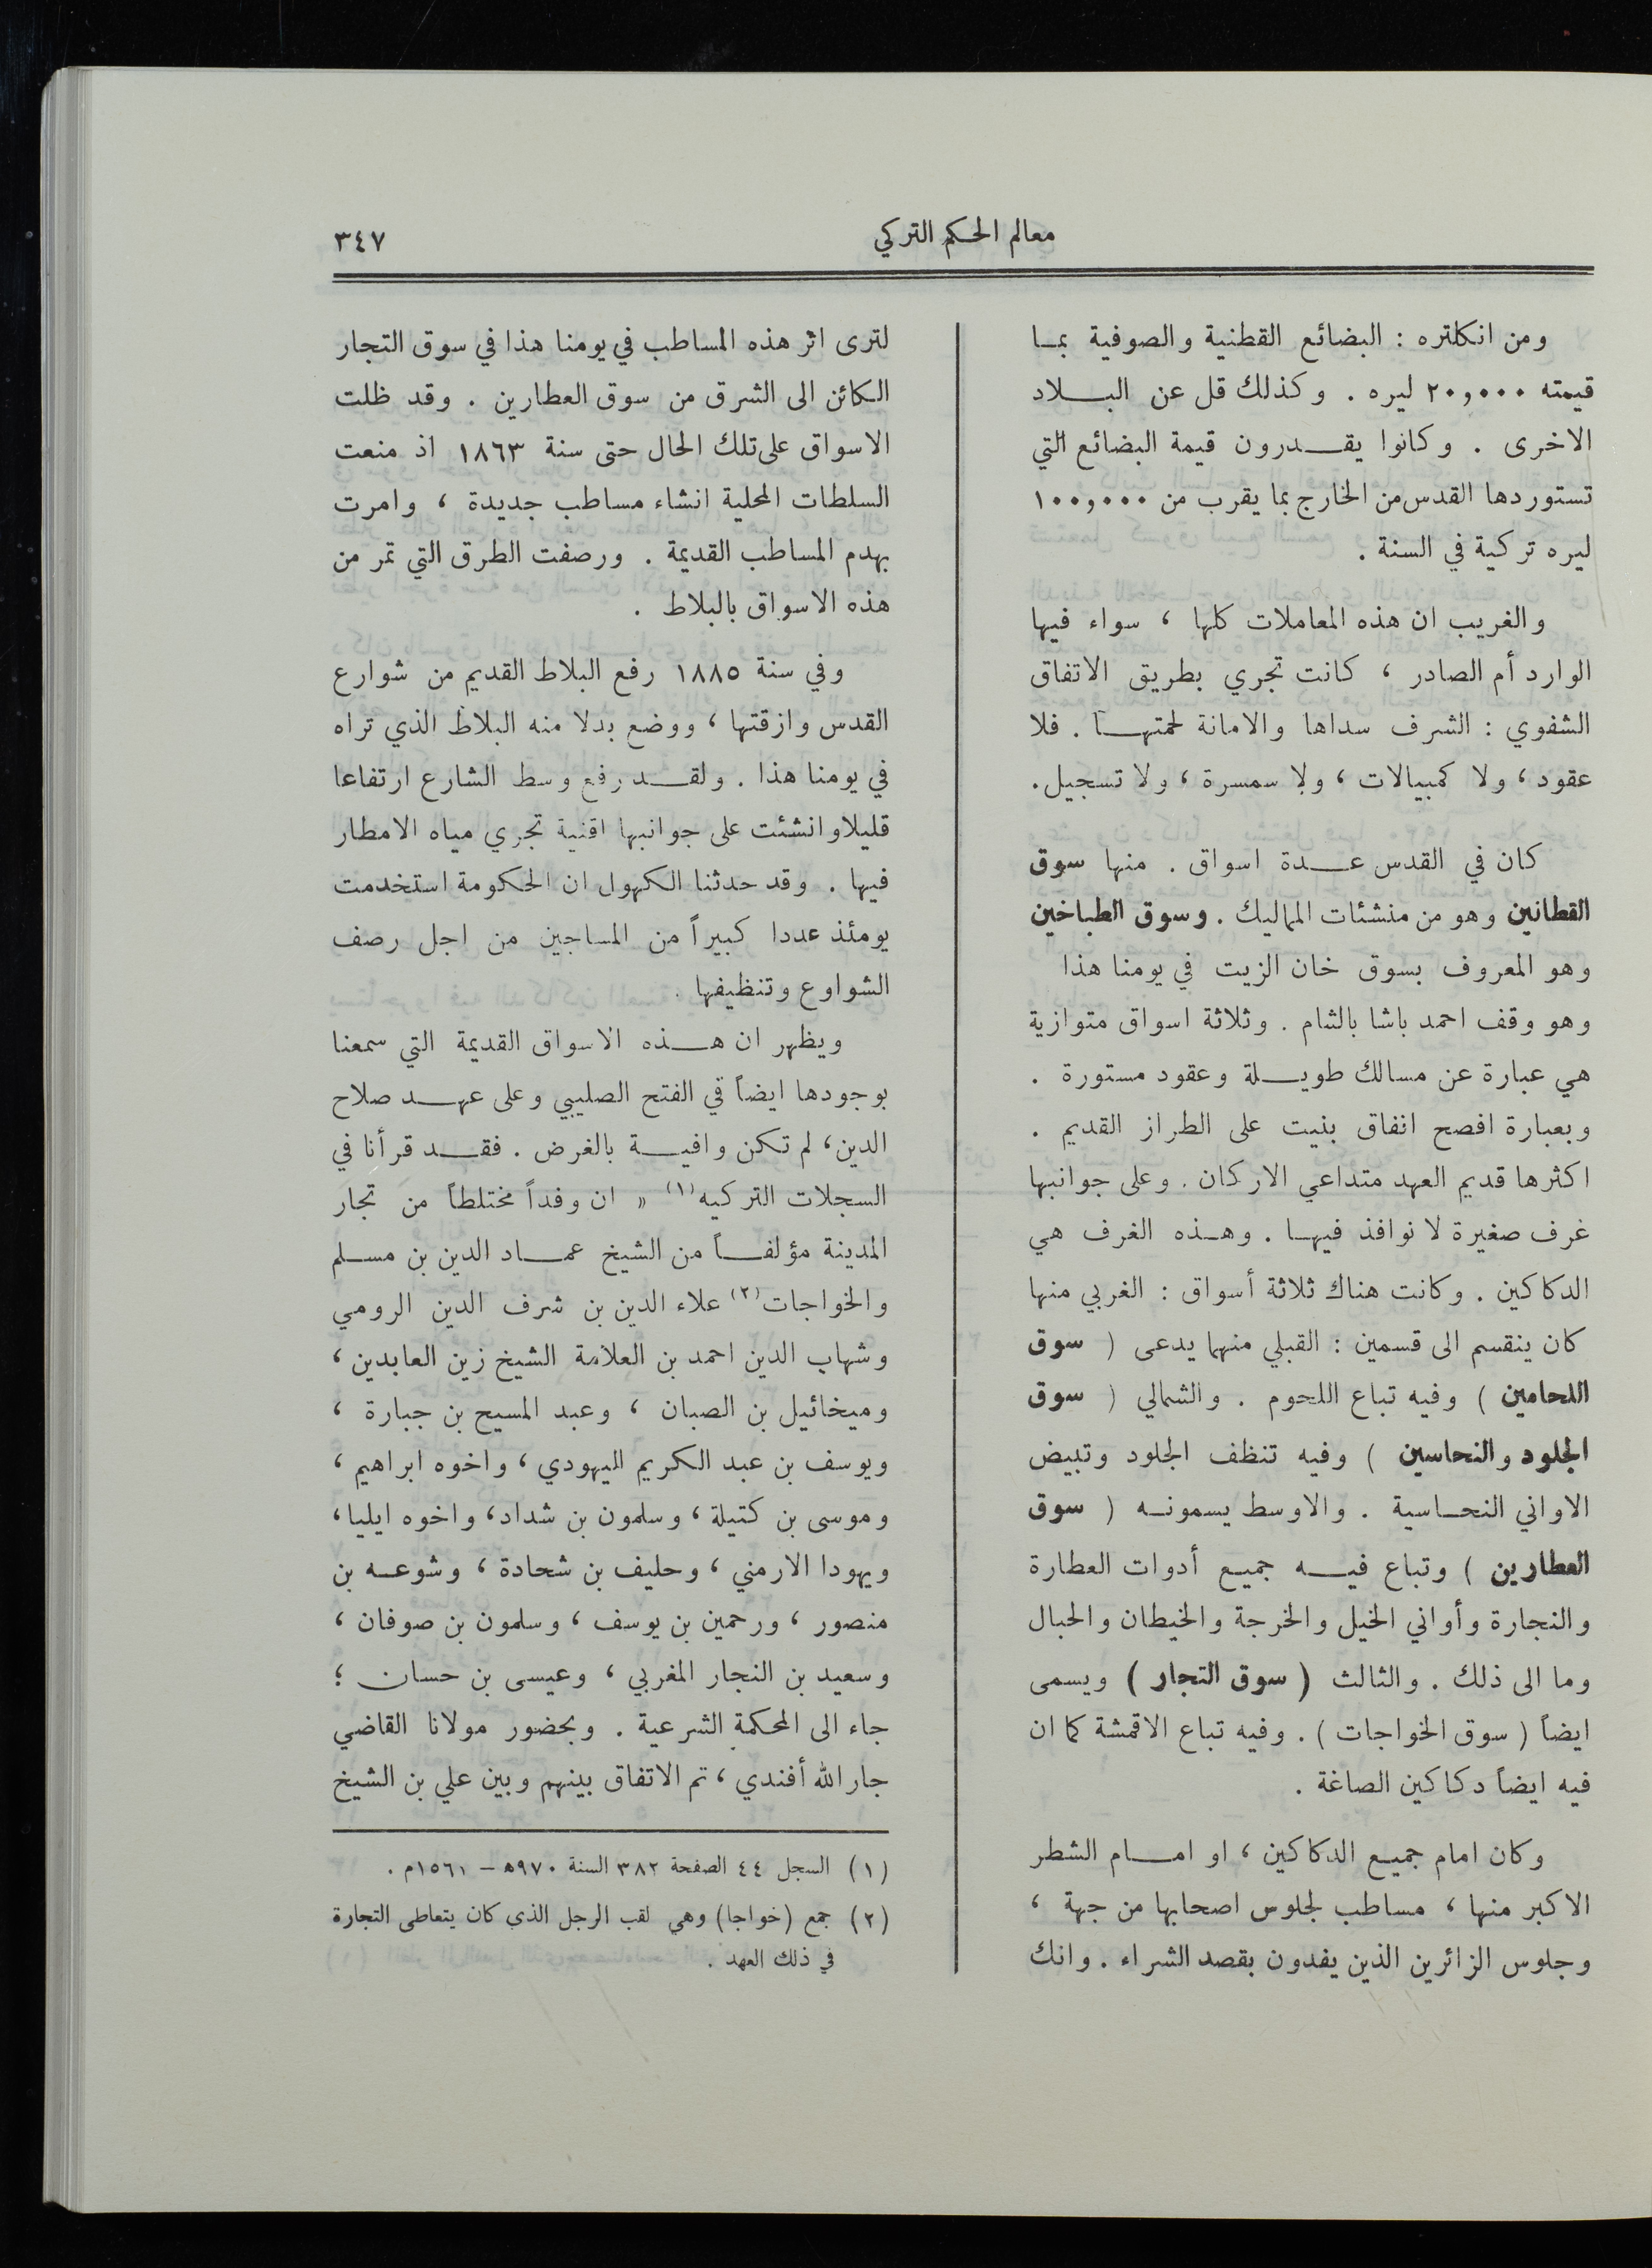 معالم الحكم التركي
٣٤٧
ومن انكلتره : البضائع القطنية والصوفية بما
قيمته ٢٠,٠٠٠ ليره . وكذلك قل عن البلاد
الاخرى . وكانوا يقدرون قيمة البضائع التي
تستوردها القدس من الخارج بما يقرب من ١٠٠,٠٠٠
ليره تركية في السنة .
والغريب ان هذه المعاملات كلها ، سواء فيها
الوارد أم الصادر ، كانت تجري بطريق الاتفاق
الشفوي : الشرف سداها والامانة لحمتها . فلا
عقود ، ولا كمبيالات ، ولا سمسرة ، ولا تسجيل .
كان في القدس عدة اسواق . منها سوق
القطانين وهو من منشئات المماليك . وسوق الطباخين
وهو المعروف بسوق خان الزيت في يومنا هذا
وهو وقف احمد باشا بالشام . وثلاثة اسواق متوازية
هي عبارة عن مسالك طويلة وعقود مستورة .
وبعبارة افصح انفاق بنيت على الطراز القديم .
اكثرها قديم العهد متداعي الاركان . وعلى جوانبها
غرف صغيرة لا نوافذ فيها . وهذه الغرف هي
الدكاكين . وكانت هناك ثلاثة أسواق : الغربي منها
كان ينقسم الى قسمين : القبلي منهما يدعى ( سوق
اللحامين ) وفيه تباع اللحوم . والشمالي ( سوق
الجلود والنحاسين ) وفيه تنظف الجلود وتبيض
الاواني النحاسية . والاوسط يسمونه ( سوق
العطارين ) وتباع فيه جميع أدوات العطارة
والنجارة وأواني الخيل والخرجة والخيطان والحبال
وما الى ذلك . والثالث ( سوق التجار ) ويسمى
ايضاً ( سوق الخواجات ) . وفيه تباع الاقمشة كما ان
فيه ايضاً دكاكين الصاغة .
وكان امام جميع الدكاكين ، او امام الشطر
الاكبر منها ، مساطب لجلوس اصحابها من جهة ،
وجلوس الزائرين الذين يفدون بقصد الشراء . وانك
لترى اثر هذه المساطب في يومنا هذا في سوق التجار
الكائن الى الشرق من سوق العطارين . وقد ظلت
الاسواق على تلك الحال حتى سنة ١٨٦٣ اذ منعت
السلطات المحلية انشاء مساطب جديدة ، وامرت
بهدم المساطب القديمة . ورصفت الطرق التي تمر من
هذه الاسواق بالبلاط .
وفي سنة ١٨٨٥ رفع البلاط القديم من شوارع
القدس وازقتها ، ووضع بدلا منه البلاط الذي تراه
في يومنا هذا . ولقد رفع وسط الشارع ارتفاعا
قليلا وانشئت على جوانبها اقنية تجري مياه الامطار
فيها . وقد حدثنا الكهول ان الحكومة استخدمت
يومئذ عددا كبيراً من المساجين من اجل رصف
الشواوع وتنظيفها .
ويظهر ان هذه الاسواق القديمة التي سمعنا
بوجودها ايضاً في الفتح الصليبي وعلى عهد صلاح
الدين ، لم تكن وافية بالغرض . فقد قرأنا في
السجلات التركيه (١) « ان وفداً مختلطاً من تجار
المدينة مؤلفاً من الشيخ عماد الدين بن مسلم
والخواجات (٢) علاء الدين بن شرف الدين الرومي
وشهاب الدين احمد بن العلامة الشيخ زين العابدين ،
وميخائيل بن الصبان ، وعبد المسيح بن جبارة ،
ويوسف بن عبد الكريم اليهودي ، واخوه ابراهيم ،
وموسى بن كتيلة ، وسلمون بن شداد ، واخوه ايليا ،
ويهودا الارمني ، وحليف بن شحادة ، وشوعه بن
منصور ، ورحمين بن يوسف ، وسلمون بن صوفان ،
وسعيد بن النجار المغربي ، وعيسى بن حسان ؛
جاء الى المحكمة الشرعية . وبحضور مولانا القاضي
جار الله أفندي ، تم الاتفاق بينهم وبين علي بن الشيخ
(١) السجل ٤٤ الصفحة ٣٨٢ السنة ٩٧٠ه‍ – ١٥٦١م .
(٢) جمع (خواجا) وهي لقب الرجل الذي كان يتعاطى التجارة
في ذلك العهد .